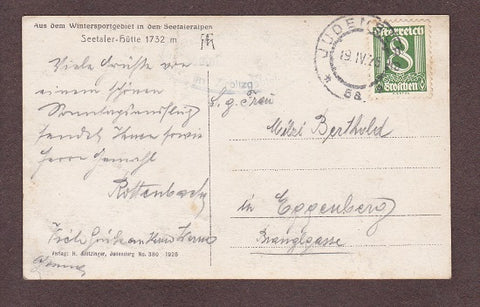 Aus dem Wintersportgebiet in den Seetaleralpen
Seetaler-Hütte 1732 m
Viele Grüße von
einem schönen
Sonntagsausflug
sendet Ihnen sowie
Herrn Gemahl
Rottenbach
Verlag: H. Gutzinger, Judenburg No. 380 1926
JUDENBURG
19. IV. 2
5a
Österreich
8
Groschen
S. g. Frau
Mitzi Berthold
in Eggenberg